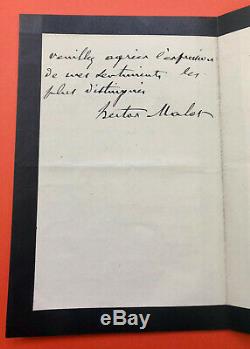 veuillez agréer l'expression
de mes sentiments les
plus distingués
Hector Malot
ebay